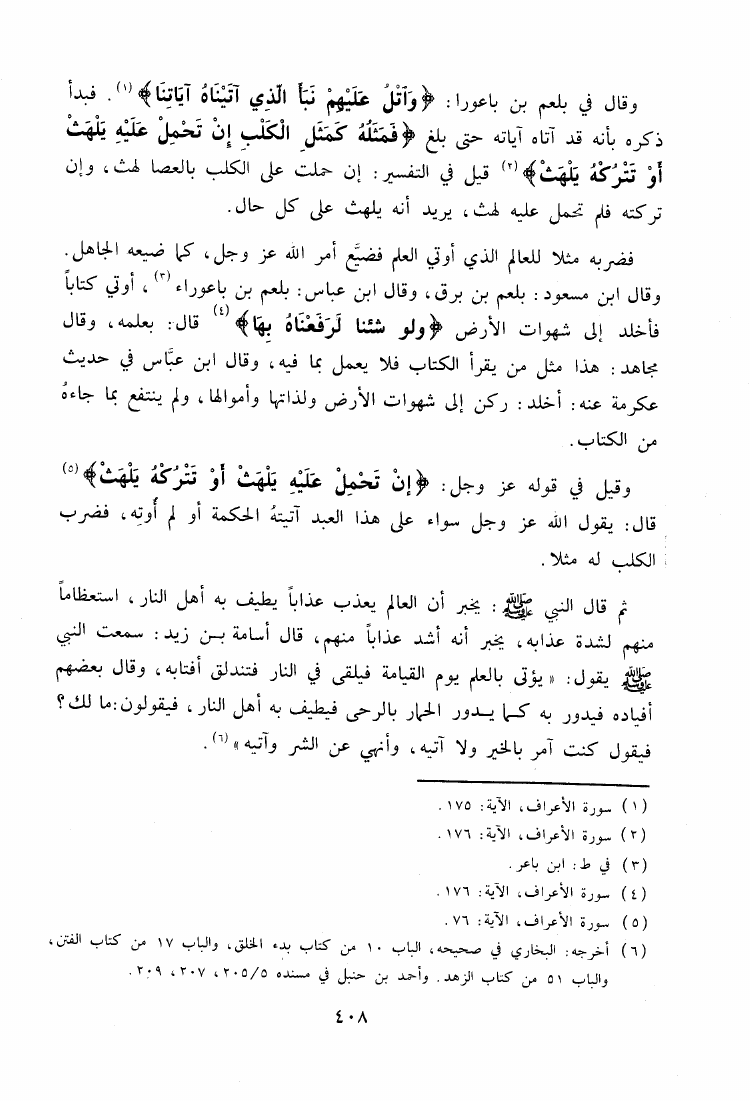 وقال في بلعم بن باعورا: ﴿وَآتْلُ عَلَيْهِمْ نَبَأَ الَّذِي آتَيْنَاهُ آيَاتِنَا﴾(١). فبدأ
ذكره بأنه قد آتاه آياته حتى بلغ ﴿فَمَثَلُهُ كَمَثَلِ الْكَلْبِ إِنْ تَحْمِلْ عَلَيْهِ يَلْهَثْ
أَوْ تَتْرُكْهُ يَلْهَثْ﴾(٢) قيل في التفسير: إن حملت على الكلب بالعصا لهث، وإن
تركته فلم تحمل عليه لهث، يريد أنه يلهث على كل حال.
فضربه مثلا للعالم الذي أوتي العلم فضيَّع أمر الله عز وجل، كما ضيعه الجاهل.
وقال ابن مسعود: بلعم بن برق، وقال ابن عباس: بلعم بن باعوراء(٣)، أوتي كتاباً
فأخلد إلى شهوات الأرض ﴿ولو شئنا لَرَفَعْنَاهُ بِهَا﴾(٤) قال: بعلمه، وقال
مجاهد: هذا مثل من يقرأ الكتاب فلا يعمل بما فيه، وقال ابن عبَّاس في حديث
عكرمة عنه: أخلد: ركن إلى شهوات الأرض ولذاتها وأموالها، ولم ينتفع بما جاءهُ
من الكتاب.
وقيل في قوله عز وجل: ﴿إِنْ تَحْمِلْ عَلَيْهِ يَلْهَثْ أَوْ تَتْرُكْهُ يَلْهَثْ﴾(٥)
قال: يقول الله عز وجل سواء على هذا العبد آتيتهُ الحكمة أو لم أُوتِه، فضرب
الكلب له مثلا.
ثم قال النبي ﷺ: يخبر أن العالم يعذب عذاباً يطيف به أهل النار، استعظاماً
منهم لشدة عذابه، يخبر أنه أشد عذاباً منهم، قال أسامة بن زيد: سمعت النبي
ﷺ يقول: «يؤتى بالعلم يوم القيامة فيلقى في النار فتندلق أقتابه، وقال بعضهم
أفياده فيدور به كما يدور الحمار بالرحى فيطيف به أهل النار، فيقولون: ما لك؟
فيقول كنت آمر بالخير ولا آتيه، وأنهي عن الشر وآتيه»(٦).
(١) سورة الأعراف، الآية: ١٧٥.
(٢) سورة الأعراف، الآية: ١٧٦.
(٣) في ط: ابن باعر.
(٤) سورة الأعراف، الآية: ١٧٦.
(٥) سورة الأعراف، الآية: ٧٦.
(٦) أخرجه: البخاري في صحيحه، الباب ١٠ من كتاب بدء الخلق، والباب ١٧ من كتاب الفتن،
والباب ٥١ من كتاب الزهد. وأحمد بن حنبل في مسنده ٢٠٥/٥، ٢٠٧، ٢٠٩.
٤٠٨